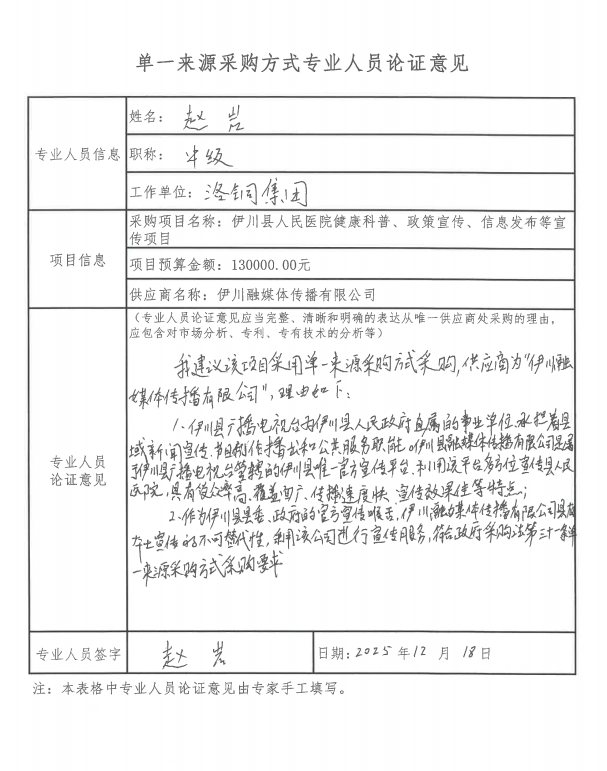 单一来源采购方式专业人员论证意见
专业人员信息
姓名：赵岩
职称：中级
工作单位：洛铜集团
项目信息
采购项目名称：伊川县人民医院健康科普、政策宣传、信息发布等宣
传项目
项目预算金额：130000.00元
供应商名称：伊川融媒体传播有限公司
专业人员
论证意见
（专业人员论证意见应当完整、清晰和明确的表达从唯一供应商处采购的理由，
应包含对市场分析、专利、专有技术的分析等）
我建议该项目采用单一来源采购方式采购，供应商为“伊川融
媒体传播有限公司”，理由如下：
1、伊川县广播电视台为伊川县人民政府直属的事业单位，承担着县
域新闻宣传、节目制作播出和公共服务职能。伊川县融媒体传播有限公司是
于伊川县广播电视台的伊川县唯一官方宣传平台，利用该平台全方位宣传县人民
医院，具有效率高、覆盖面广、传播速度快、宣传效果佳等特点；
2、作为伊川县县委、政府的官方宣传喉舌，伊川融媒体传播有限公司具有
本土宣传的不可替代性，利用该公司进行宣传服务，符合政府采购法第三十一条单
一来源采购方式采购要求
专业人员签字
赵岩
日期：2025年12月18日
注：本表格中专业人员论证意见由专家手工填写。